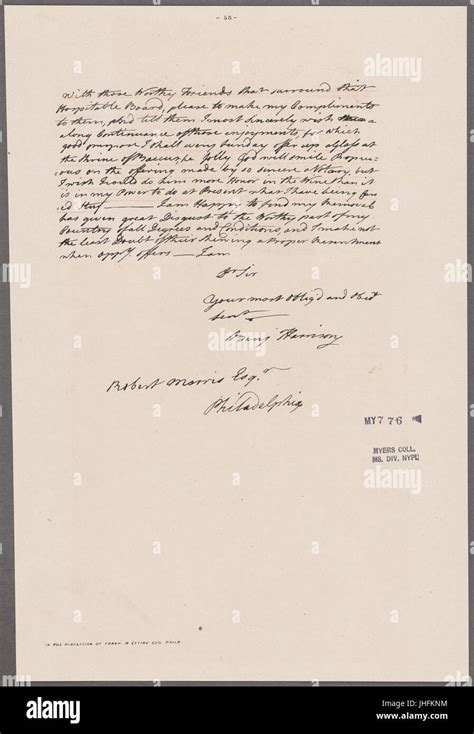 - 58 -
With those Worthy Friends that surround that
Hospitable Board, please to make my Compliments
to them, and tell them I most sincerely wish a
a long Continuance of those enjoyments, for which
good purpose I shall every Sunday offer up a glass at
the Shrine of Baccus, the Jolly God will smile Propici-
ous on the offering made by so sincere a Votary, but
I wish I could do him more Honor in the Wine than it
is in my Power to do at Present what I have being
I am Happy to find my Removal
has given great Disgust to the Worthy part of my
Country of all Degrees and Conditions, and I make not
the least Doubt of their shewing a Proper Resentment
when oppy. offers — I am
Dr Sir
Your most Oblig'd and Obed
Servt
Benj Harrison
Robert Morris Esqr
Philadelphia
MY 776
MYERS COLL.
MS. DIV. NYPL
IN THE POSSESSION OF FRANK. M. ETTING ESQ. PHILA.
alamy
Image ID: JHFKNM
www.alamy.com